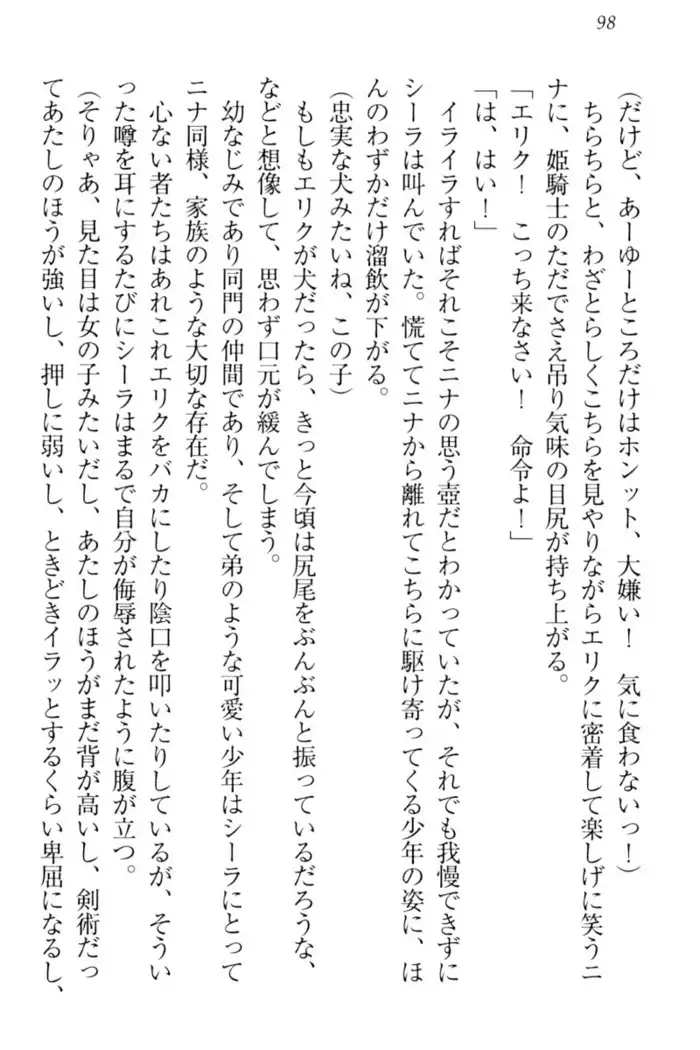 98
(だけど、あーゆーところだけはホンット、大嫌い！　気に食わないっ！)
　ちらちらと、わざとらしくこちらを見やりながらエリクに密着して楽しげに笑うニ
ナに、姫騎士のただでさえ吊り気味の目尻が持ち上がる。
「エリク！　こっち来なさい！　命令よ！」
「は、はい！」
　イライラすればそれこそニナの思う壺だとわかっていたが、それでも我慢できずに
シーラは叫んでいた。慌ててニナから離れてこちらに駆け寄ってくる少年の姿に、ほ
んのわずかだけ溜飲が下がる。
(忠実な犬みたいね、この子)
　もしもエリクが犬だったら、きっと今頃は尻尾をぶんぶんと振っているだろうな、
などと想像して、思わず口元が緩んでしまう。
　幼なじみであり同門の仲間であり、そして弟のような可愛い少年はシーラにとって
ニナ同様、家族のような大切な存在だ。
　心ない者たちはあれこれエリクをバカにしたり陰口を叩いたりしているが、そうい
った噂を耳にするたびにシーラはまるで自分が侮辱されたように腹が立つ。
(そりゃあ、見た目は女の子みたいだし、あたしのほうがまだ背が高いし、剣術だっ
てあたしのほうが強いし、押しに弱いし、ときどきイラッとするくらい卑屈になるし、